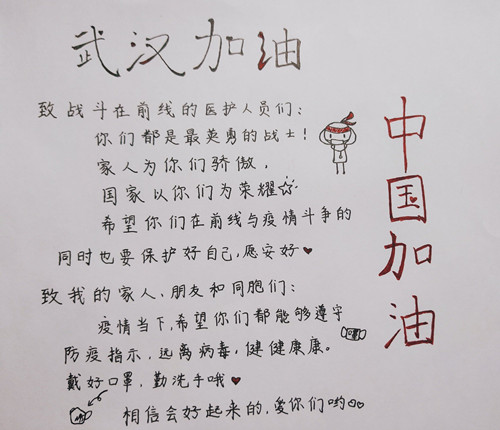 武汉加油
致战斗在前线的医护人员们：
你们都是最英勇的战士！
家人为你们骄傲，
国家以你们为荣耀☆
希望你们在前线与疫情斗争的
同时也要保护好自己，愿安好♥
致我的家人、朋友和同胞们：
疫情当下，希望你们都能够遵守
防疫指示，远离病毒，健健康康。
戴好口罩，勤洗手哦♥
相信会好起来的，爱你们哟
中国加油